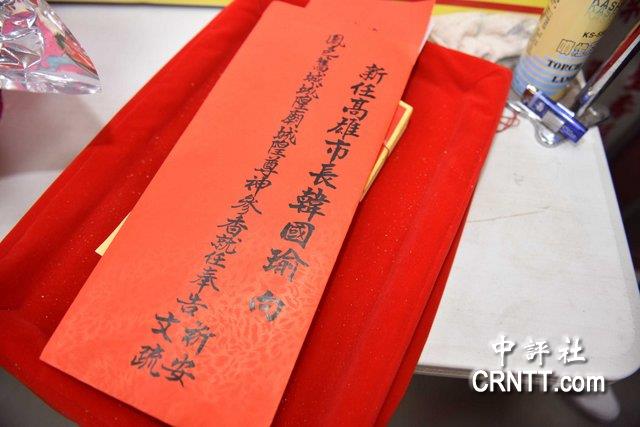 新任高雄市長韓國瑜 向
鳳邑舊城城隍廟城隍尊神參香就任奉告祈安
文疏
TORCH
中評社
CRNTT.com